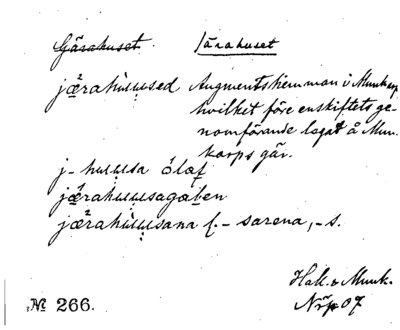 Gärahuset Järahuset
jǟrahu̇u̇sed Augmentshemman i Munkarp,
hvilket före enskiftets ge-
nomförande legat å Mun-
karps går.
j- husu̇sa ōlaf
jǟrahu̇u̇sagaben
jǟrahu̇u̇sana f. – sarena, –s.
Hall. o Munk.
№ 266.